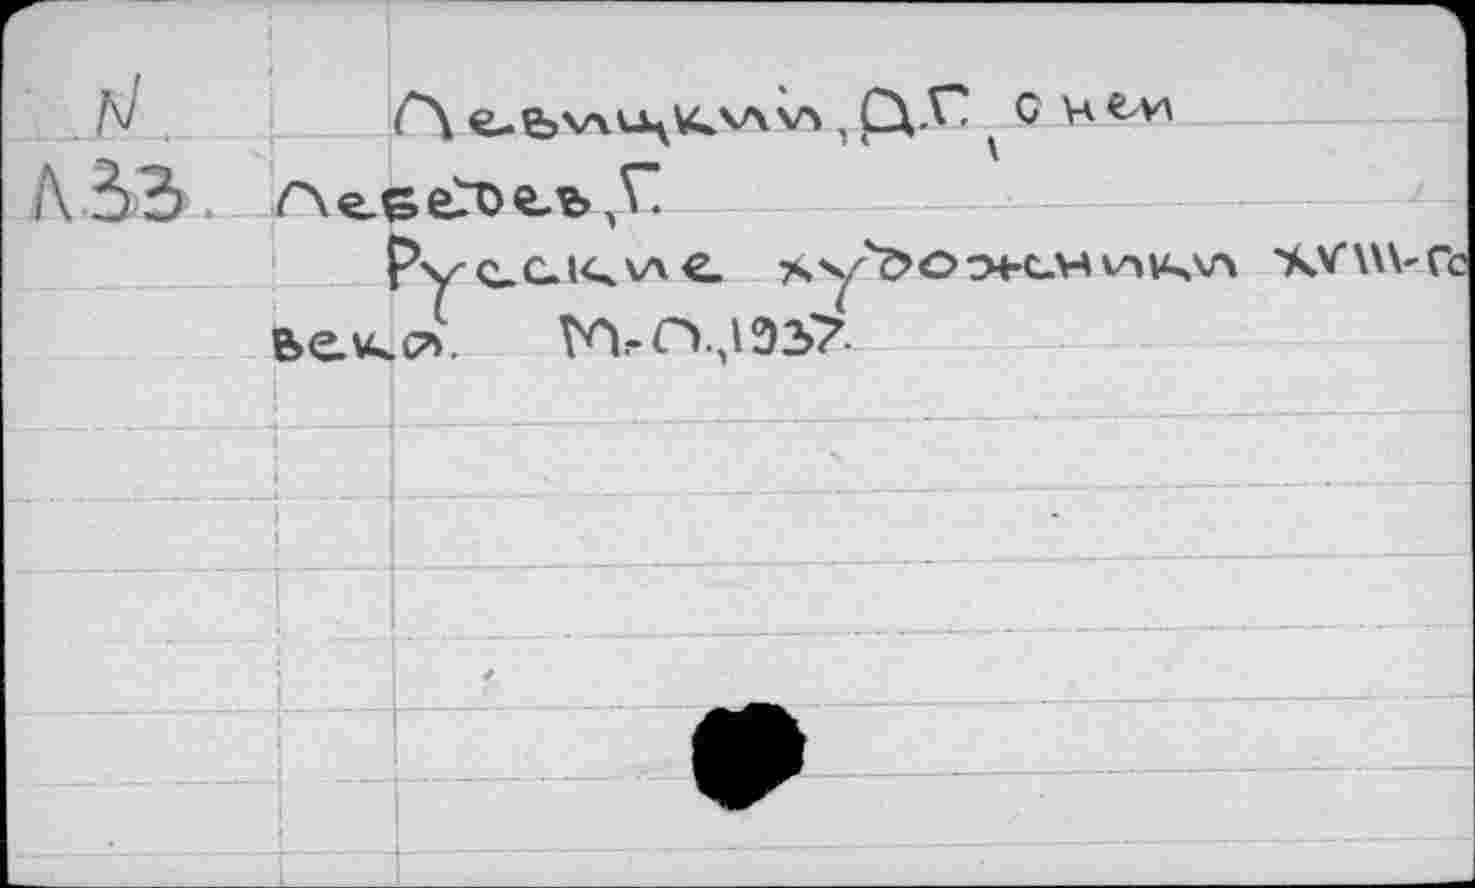 N Левицкий, Д.Г., о нем
Л33. Лебедев, Г.
Русские художники XVIII-го
века. М.-Л., 1937.